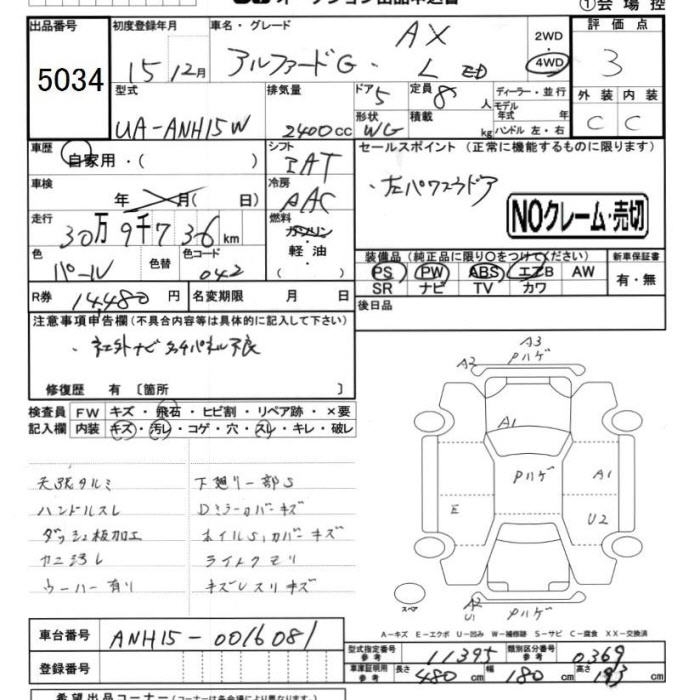 ①会場控
出品番号
5034
初度登録年月
15 12月
車名・グレード
アルファードG AX L ED
2WD
4WD
評価点
3
型式
UA-ANH15W
排気量
2400cc
ドア
5
形状
WG
定員
8人
積載
kg
ディーラー・並行
モデル年式 年
ハンドル 左・右
外装 内装
C C
車歴
自家用・( )
シフト
IAT
セールスポイント (正常に機能するものに限ります)
・左パワースライドドア
車検
年 月( 日)
冷房
AAC
NOクレーム・売切
走行
30万9千736km
燃料
ガソリン
軽油
( )
色
パール
色替
色コード
042
装備品(純正品に限り○をつけてください)
PS PW ABS エアB AW
SR ナビ TV カワ
新車保証書
有・無
R券
14,480円
名変期限 月 日
後日品
注意事項申告欄(不具合内容等は具体的に記入して下さい)
・社外ナビ タッチパネル不良
修復歴 有 〔箇所 〕
検査員記入欄
FW キズ・飛石・ヒビ割・リペア跡・×要
内装 キズ・汚れ・コゲ・穴・スレ・キレ・破レ
天張タルミ
ハンドルスレ
ダッシュ板加工
カニ汚レ
ウーハー有り
下廻り一部S
Dミラーカバーキズ
ホイルS,カバーキズ
ライトクモリ
キズレスリキズ
A3
A2
Pハゲ
A1
Pハゲ
A1
E
U2
スペア
A2
U1
Pハゲ
A-キズ E-エクボ U-凹み W-補修跡 S-サビ C-腐食 XX-交換済
車台番号
ANH15-0016081
登録番号
型式指定番号
参考
11395
類別区分番号
参考
0369
車庫証明用
参考
長さ 480cm
幅 180cm
高さ 193cm
希望出品コーナー